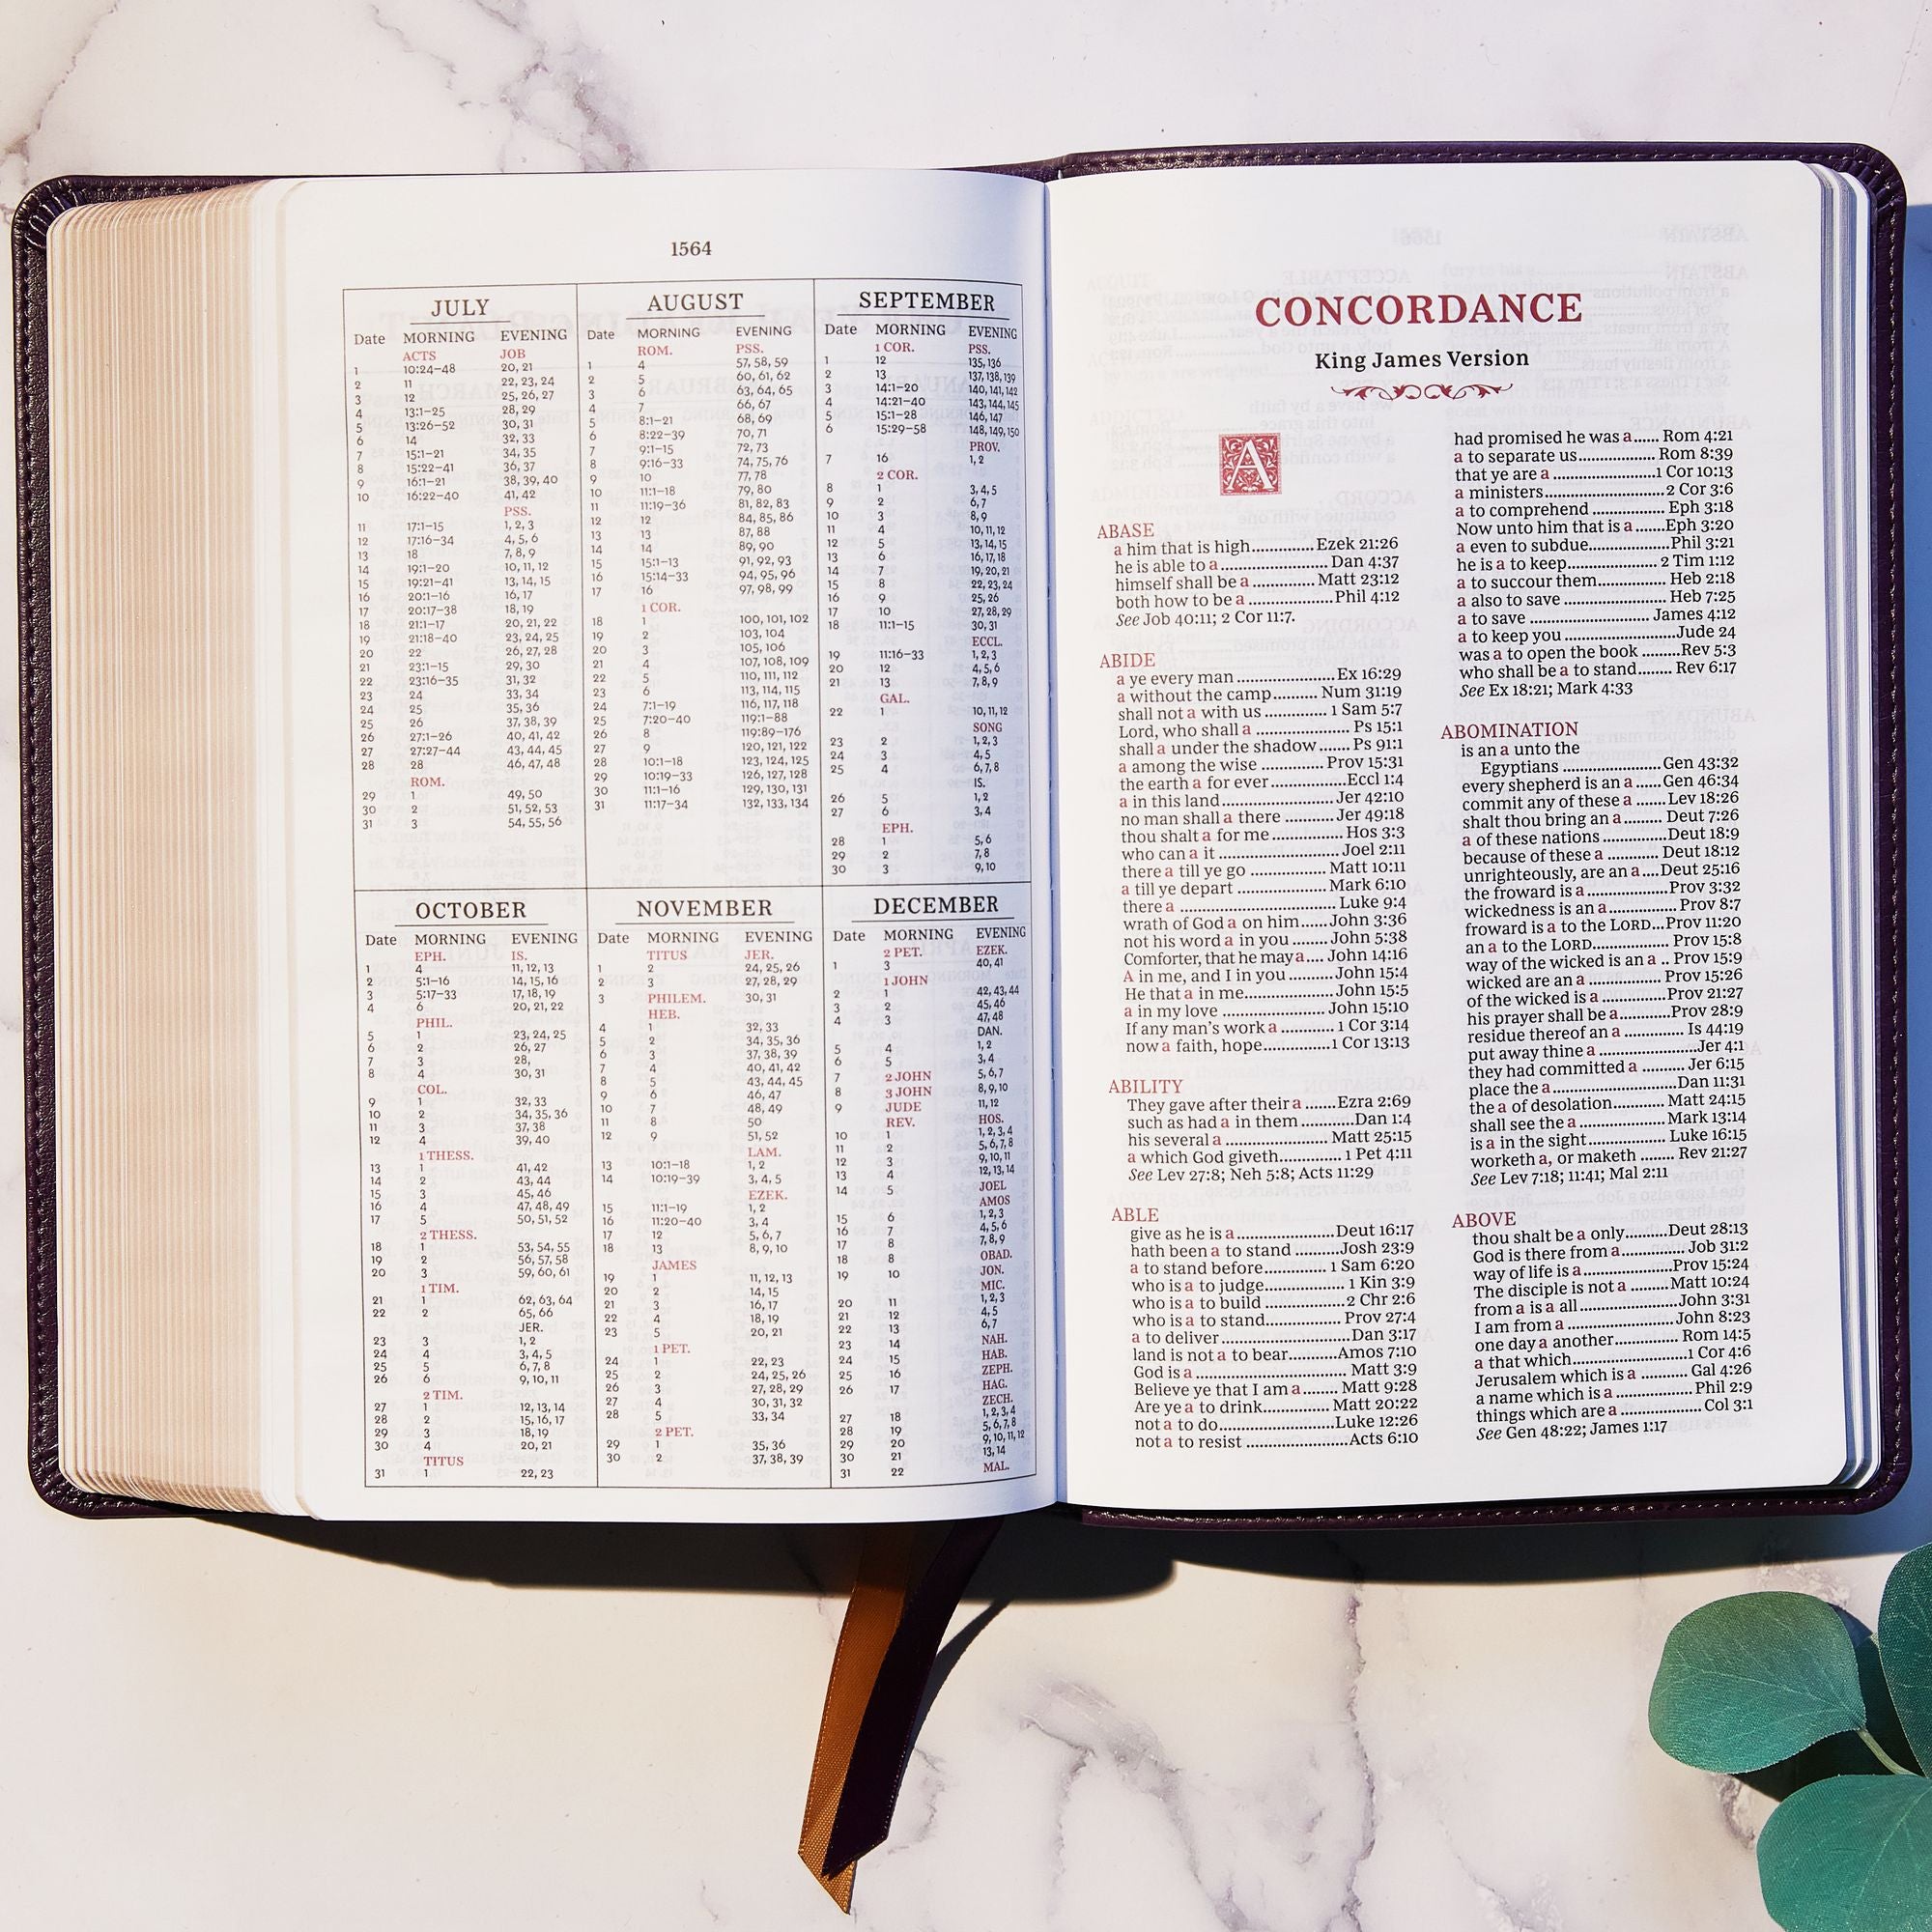 1564
JULY
Date MORNING EVENING
ACTS JOB
1 10:24–48 20, 21
2 11 22, 23, 24
3 12 25, 26, 27
4 13:1–25 28, 29
5 13:26–52 30, 31
6 14 32, 33
7 15:1–21 34, 35
8 15:22–41 36, 37
9 16:1–21 38, 39, 40
10 16:22–40 41, 42
PSS.
11 17:1–15 1, 2, 3
12 17:16–34 4, 5, 6
13 18 7, 8, 9
14 19:1–20 10, 11, 12
15 19:21–41 13, 14, 15
16 20:1–16 16, 17
17 20:17–38 18, 19
18 21:1–17 20, 21, 22
19 21:18–40 23, 24, 25
20 22 26, 27, 28
21 23:1–15 29, 30
22 23:16–35 31, 32
23 24 33, 34
24 25 35, 36
25 26 37, 38, 39
26 27:1–26 40, 41, 42
27 27:27–44 43, 44, 45
28 28 46, 47, 48
ROM.
29 1 49, 50
30 2 51, 52, 53
31 3 54, 55, 56
AUGUST
Date MORNING EVENING
ROM. PSS.
1 4 57, 58, 59
2 5 60, 61, 62
3 6 63, 64, 65
4 7 66, 67
5 8:1–21 68, 69
6 8:22–39 70, 71
7 9:1–15 72, 73
8 9:16–33 74, 75, 76
9 10 77, 78
10 11:1–18 79, 80
11 11:19–36 81, 82, 83
12 12 84, 85, 86
13 13 87, 88
14 14 89, 90
15 15:1–13 91, 92, 93
16 15:14–33 94, 95, 96
17 16 97, 98, 99
1 COR.
18 1 100, 101, 102
19 2 103, 104
20 3 105, 106
21 4 107, 108, 109
22 5 110, 111, 112
23 6 113, 114, 115
24 7:1–19 116, 117, 118
25 7:20–40 119:1–88
26 8 119:89–176
27 9 120, 121, 122
28 10:1–18 123, 124, 125
29 10:19–33 126, 127, 128
30 11:1–16 129, 130, 131
31 11:17–34 132, 133, 134
SEPTEMBER
Date MORNING EVENING
1 COR. PSS.
1 12 135, 136
2 13 137, 138, 139
3 14:1–20 140, 141, 142
4 14:21–40 143, 144, 145
5 15:1–28 146, 147
6 15:29–58 148, 149, 150
PROV.
7 16 1, 2
2 COR.
8 1 3, 4, 5
9 2 6, 7
10 3 8, 9
11 4 10, 11, 12
12 5 13, 14, 15
13 6 16, 17, 18
14 7 19, 20, 21
15 8 22, 23, 24
16 9 25, 26
17 10 27, 28, 29
18 11:1–15 30, 31
ECCL.
19 11:16–33 1, 2, 3
20 12 4, 5, 6
21 13 7, 8, 9
GAL.
22 1 10, 11, 12
SONG
23 2 1, 2, 3
24 3 4, 5
25 4 6, 7, 8
IS.
26 5 1, 2
27 6 3, 4
EPH.
28 1 5, 6
29 2 7, 8
30 3 9, 10
OCTOBER
Date MORNING EVENING
EPH. IS.
1 4 11, 12, 13
2 5:1–16 14, 15, 16
3 5:17–33 17, 18, 19
4 6 20, 21, 22
PHIL.
5 1 23, 24, 25
6 2 26, 27
7 3 28,
8 4 30, 31
COL.
9 1 32, 33
10 2 34, 35, 36
11 3 37, 38
12 4 39, 40
1 THESS.
13 1 41, 42
14 2 43, 44
15 3 45, 46
16 4 47, 48, 49
17 5 50, 51, 52
2 THESS.
18 1 53, 54, 55
19 2 56, 57, 58
20 3 59, 60, 61
1 TIM.
21 1 62, 63, 64
22 2 65, 66
JER.
23 3 1, 2
24 4 3, 4, 5
25 5 6, 7, 8
26 6 9, 10, 11
2 TIM.
27 1 12, 13, 14
28 2 15, 16, 17
29 3 18, 19
30 4 20, 21
TITUS
31 1 22, 23
NOVEMBER
Date MORNING EVENING
TITUS JER.
1 2 24, 25, 26
2 3 27, 28, 29
3 PHILEM. 30, 31
HEB.
4 1 32, 33
5 2 34, 35, 36
6 3 37, 38, 39
7 4 40, 41, 42
8 5 43, 44, 45
9 6 46, 47
10 7 48, 49
11 8 50
12 9 51, 52
LAM.
13 10:1–18 1, 2
14 10:19–39 3, 4, 5
EZEK.
15 11:1–19 1, 2
16 11:20–40 3, 4
17 12 5, 6, 7
18 13 8, 9, 10
JAMES
19 1 11, 12, 13
20 2 14, 15
21 3 16, 17
22 4 18, 19
23 5 20, 21
1 PET.
24 1 22, 23
25 2 24, 25, 26
26 3 27, 28, 29
27 4 30, 31, 32
28 5 33, 34
2 PET.
29 1 35, 36
30 2 37, 38, 39
DECEMBER
Date MORNING EVENING
2 PET. EZEK.
1 3 40, 41
1 JOHN
2 1 42, 43, 44
3 2 45, 46
4 3 47, 48
DAN.
5 4 1, 2
6 5 3, 4
7 2 JOHN 5, 6, 7
8 3 JOHN 8, 9, 10
9 JUDE 11, 12
REV. HOS.
10 1 1, 2, 3, 4
11 2 5, 6, 7, 8
12 3 9, 10, 11
13 4 12, 13, 14
14 5 JOEL
AMOS
15 6 1, 2, 3
16 7 4, 5, 6
17 8 7, 8, 9
18 8 OBAD.
19 10 JON.
MIC.
20 11 1, 2, 3
21 12 4, 5
22 13 6, 7
23 14 NAH.
24 15 HAB.
25 16 ZEPH.
26 17 HAG.
ZECH.
27 18 1, 2, 3, 4
28 19 5, 6, 7, 8
29 20 9, 10, 11, 12
30 21 13, 14
31 22 MAL.
CONCORDANCE
King James Version
A
ABASE
a him that is high............. Ezek 21:26
he is able to a ........................ Dan 4:37
himself shall be a ............. Matt 23:12
both how to be a ...................Phil 4:12
See Job 40:11; 2 Cor 11:7.
ABIDE
a ye every man ......................Ex 16:29
a without the camp.......... Num 31:19
shall not a with us .............. 1 Sam 5:7
Lord, who shall a .................... Ps 15:1
shall a under the shadow....... Ps 91:1
a among the wise ............... Prov 15:31
the earth a for ever.................Eccl 1:4
a in this land......................... Jer 42:10
no man shall a there ........... Jer 49:18
thou shalt a for me ................ Hos 3:3
who can a it .......................... Joel 2:11
there a till ye go ................. Matt 10:11
a till ye depart ..................... Mark 6:10
there a ................................... Luke 9:4
wrath of God a on him...... John 3:36
not his word a in you ........ John 5:38
Comforter, that he may a.... John 14:16
A in me, and I in you ......... John 15:4
He that a in me................... John 15:5
a in my love ....................... John 15:10
If any man's work a ............ 1 Cor 3:14
now a faith, hope...............1 Cor 13:13
ABILITY
They gave after their a .......Ezra 2:69
such as had a in them ............Dan 1:4
his several a ........................ Matt 25:15
a which God giveth.............. 1 Pet 4:11
See Lev 27:8; Neh 5:8; Acts 11:29
ABLE
give as he is a.....................Deut 16:17
hath been a to stand ..........Josh 23:9
a to stand before............... 1 Sam 6:20
who is a to judge................... 1 Kin 3:9
who is a to build ...................2 Chr 2:6
who is a to stand................. Prov 27:4
a to deliver.............................Dan 3:17
land is not a to bear...........Amos 7:10
God is a .................................. Matt 3:9
Believe ye that I am a........ Matt 9:28
Are ye a to drink................ Matt 20:22
not a to do..........................Luke 12:26
not a to resist .......................Acts 6:10
had promised he was a...... Rom 4:21
a to separate us................... Rom 8:39
that ye are a ........................1 Cor 10:13
a ministers............................2 Cor 3:6
a to comprehend .................. Eph 3:18
Now unto him that is a......Eph 3:20
a even to subdue...................Phil 3:21
he is a to keep.....................2 Tim 1:12
a to succour them................ Heb 2:18
a also to save ........................ Heb 7:25
a to save .............................. James 4:12
a to keep you .........................Jude 24
was a to open the book .........Rev 5:3
who shall be a to stand....... Rev 6:17
See Ex 18:21; Mark 4:33
ABOMINATION
is an a unto the
Egyptians ......................Gen 43:32
every shepherd is an a ......Gen 46:34
commit any of these a .......Lev 18:26
shalt thou bring an a ......... Deut 7:26
a of these nations ...............Deut 18:9
because of these a ............ Deut 18:12
unrighteously, are an a....Deut 25:16
the froward is a ................. Prov 3:32
wickedness is an a................ Prov 8:7
froward is a to the LORD...Prov 11:20
an a to the LORD................. Prov 15:8
way of the wicked is an a .. Prov 15:9
wicked are an a ................. Prov 15:26
of the wicked is a................Prov 21:27
his prayer shall be a............Prov 28:9
residue thereof an a ............. Is 44:19
put away thine a .......................Jer 4:1
they had committed a .......... Jer 6:15
place the a.............................Dan 11:31
the a of desolation............ Matt 24:15
shall see the a .................... Mark 13:14
is a in the sight................. Luke 16:15
worketh a, or maketh ........ Rev 21:27
See Lev 7:18; 11:41; Mal 2:11
ABOVE
thou shalt be a only.........Deut 28:13
God is there from a...............Job 31:2
way of life is a....................Prov 15:24
The disciple is not a ........ Matt 10:24
from a is a all..................... John 3:31
I am from a .........................John 8:23
one day a another............... Rom 14:5
a that which..........................1 Cor 4:6
Jerusalem which is a .......... Gal 4:26
a name which is a ................. Phil 2:9
things which are a ................. Col 3:1
See Gen 48:22; James 1:17